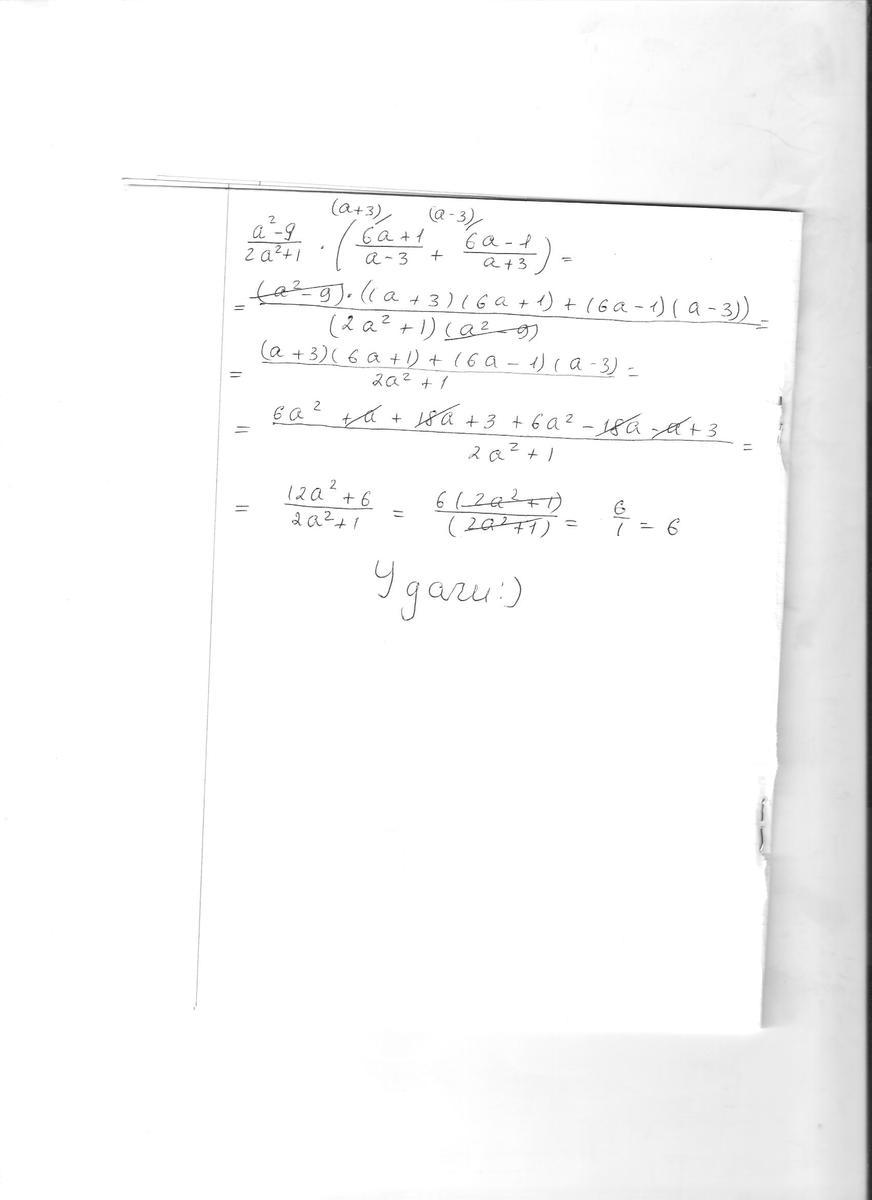 (a+3)/ (a-3)/
a²-9 / 2a²+1 · ( 6a+1 / a-3 + 6a-1 / a+3 ) =
= (a²-9)·((a+3)(6a+1)+(6a-1)(a-3)) / (2a²+1)(a²-9) =
= (a+3)(6a+1)+(6a-1)(a-3) / 2a²+1 =
= 6a² +a + 18a +3 +6a² -18a -a +3 / 2a²+1 =
= 12a²+6 / 2a²+1 = 6(2a²+1) / (2a²+1) = 6/1 = 6
Удачи:)